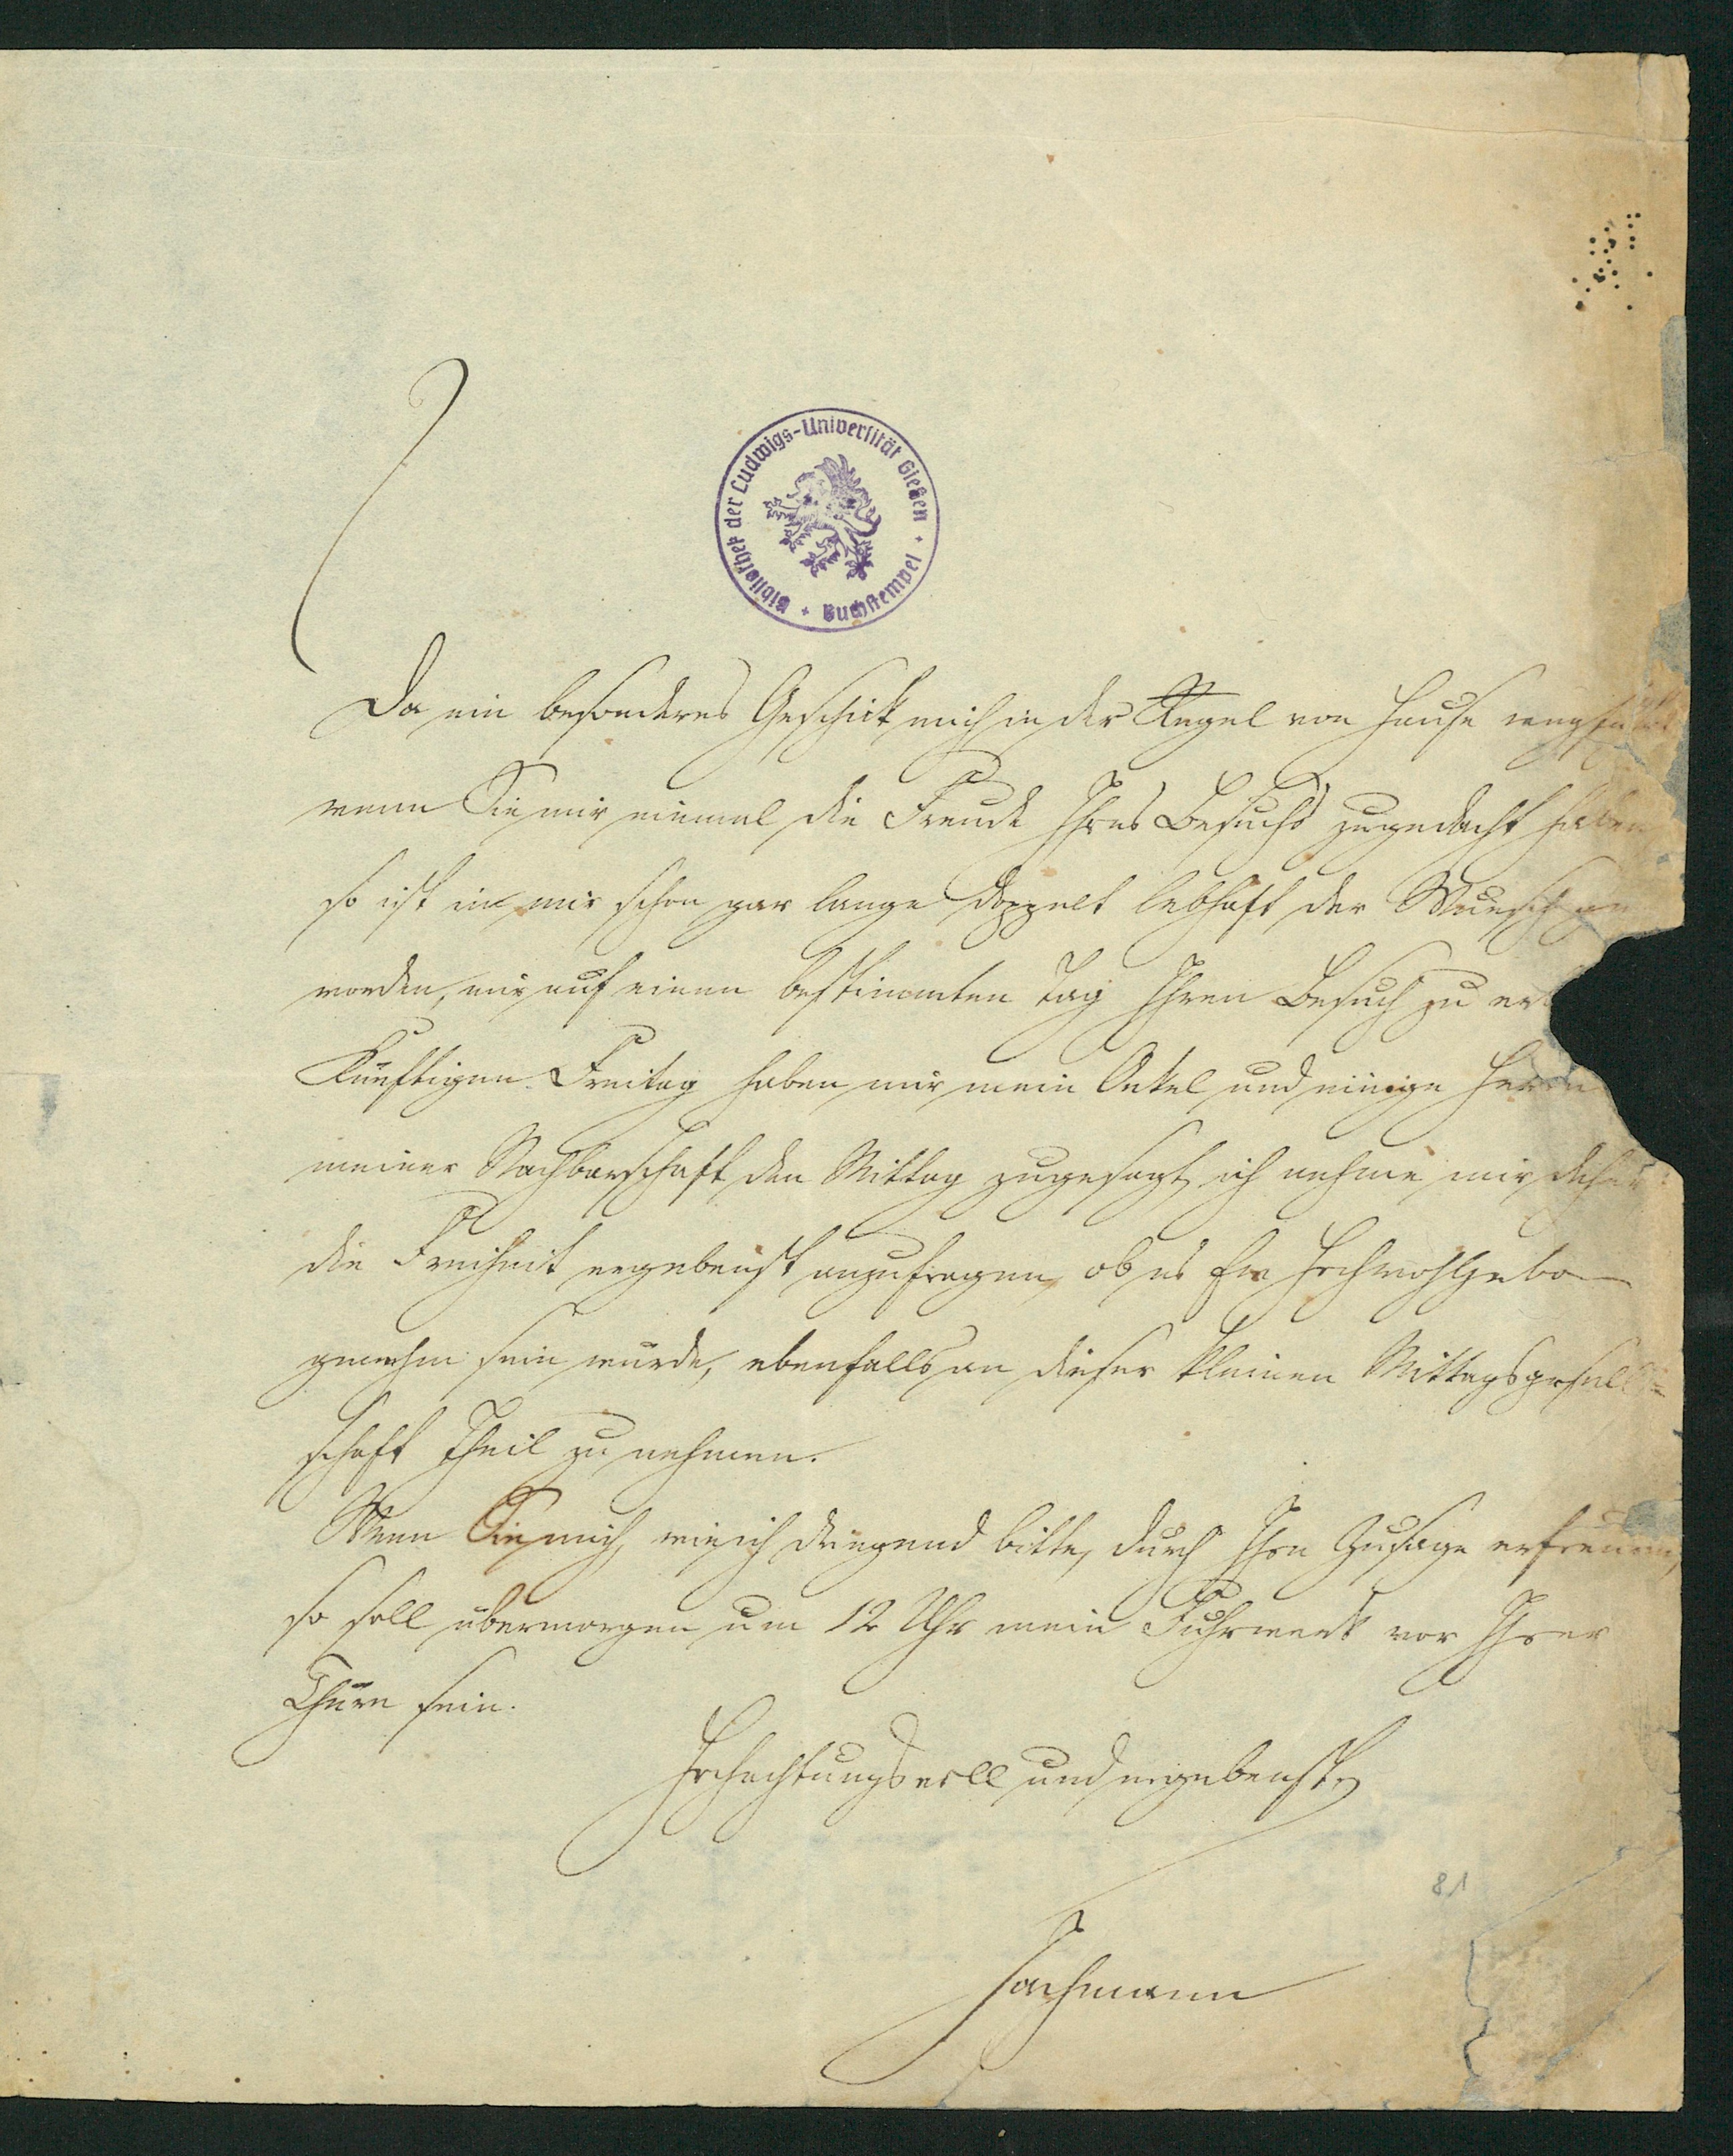 Bibliothek der Ludwigs-Universität Gießen + Buchstempel +
Da ein besonderes Geschick mich in der Regel von Hause wegführt
wenn Sie mir einmal die Freude Ihres Besuchs zugedacht haben
so ist in mir schon gar lange doppelt lebhaft der Wunsch ge
worden, mir auf einen bestimmten Tag Ihren Besuch zu er
Künftigen Freitag haben mir mein Onkel und einige Herrn
meiner Nachbarschaft den Mittag zugesagt, ich nehme mir daher
die Freiheit ergebenst anzufragen, ob es Ew Hochwohlgebo
genehm sein würde, ebenfalls an dieser kleinen Mittagsgesell=
schaft Theil zu nehmen.
Wenn Sie mich, wie ich dringend bitte, durch Ihre Zusage erfreuen,
so soll übermorgen um 12 Uhr mein Fuhrwerk vor Ihrer
Thüre sein.
Hochachtungsvoll und ergebenst
Jachmann
81